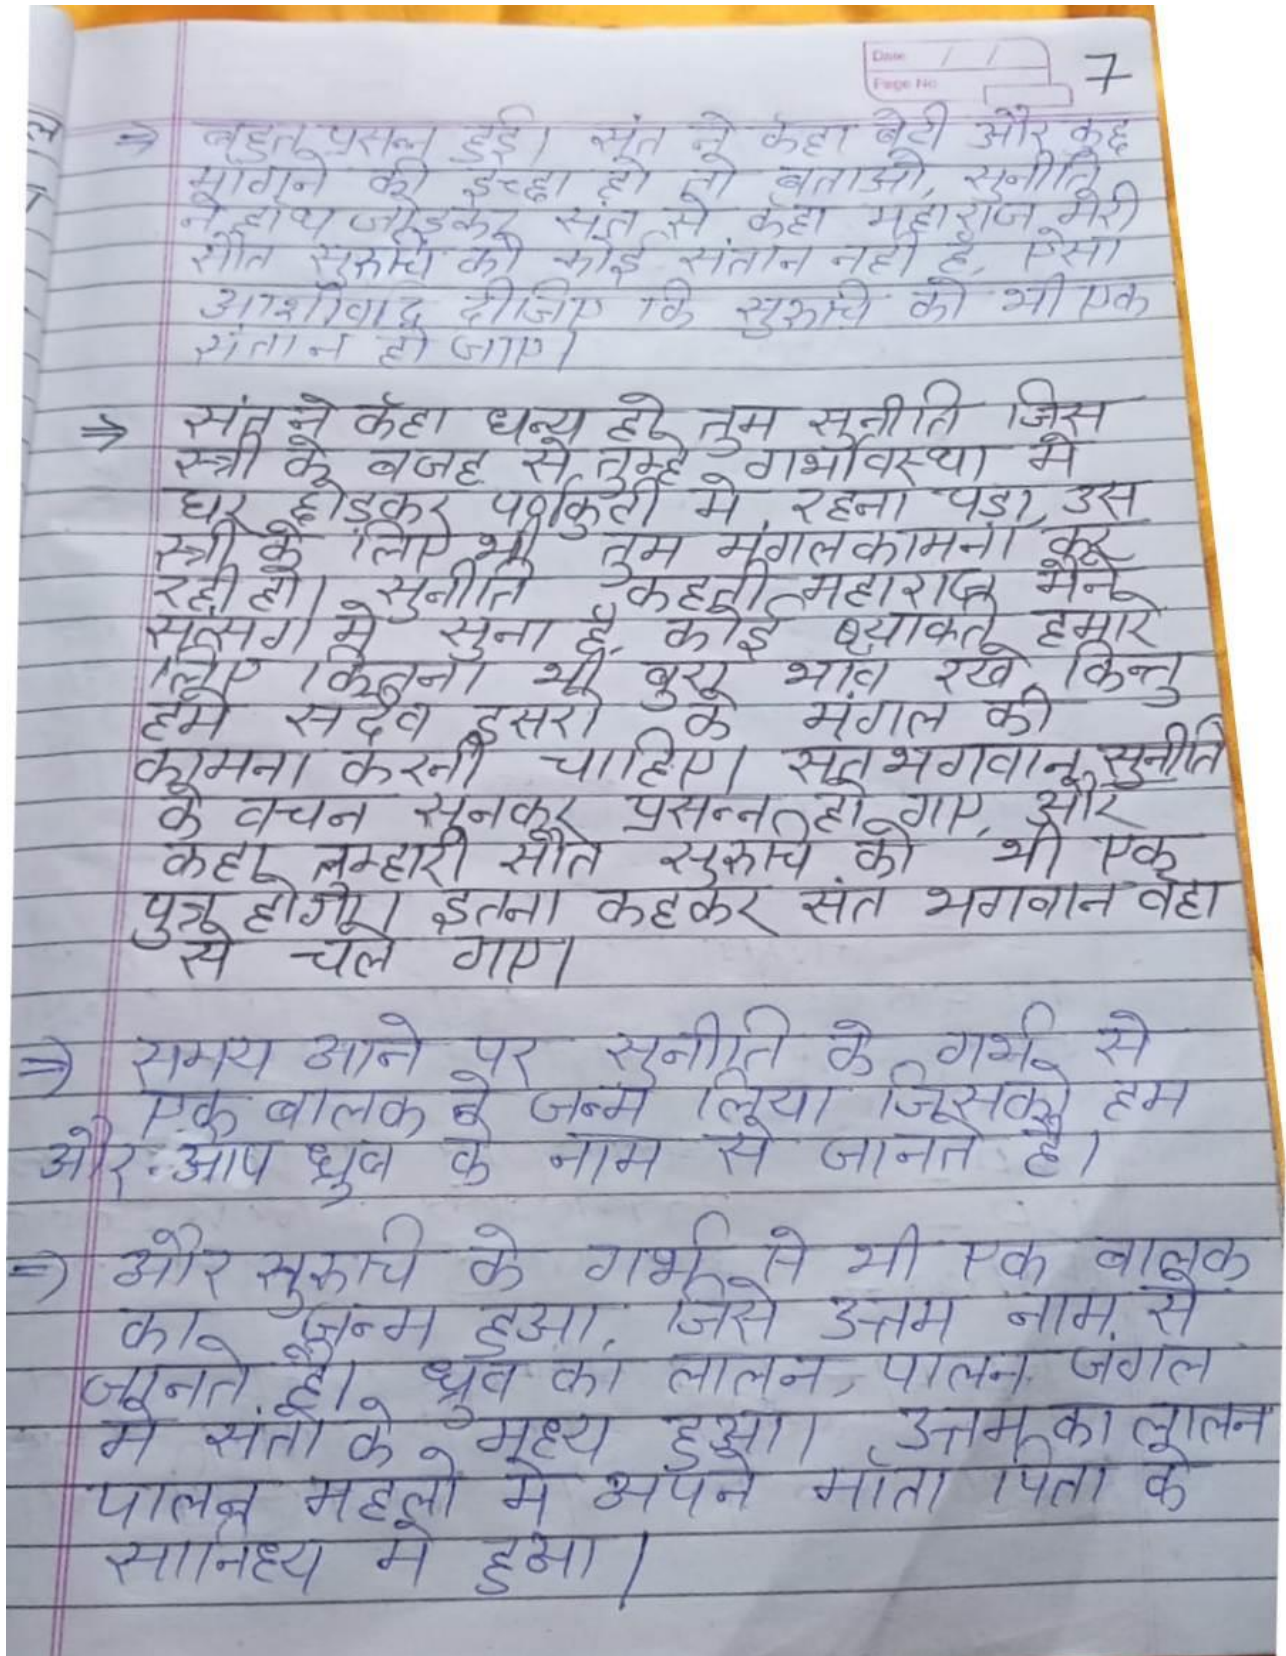 Date / /
Page No
7
⇒ बहुत प्रसन्न हुई। संत ने कहा बेटी और कुछ
मांगने की इच्छा हो तो बताओ, सुनीति
ने हाथ जोड़कर संत से कहा महाराज मेरी
सौत सुरूचि को कोई संतान नही है, ऐसा
आर्शीवाद दीजिए कि सुरूचि को भी एक
संतान हो जाए।
⇒ संत ने कहा धन्य हो तुम सुनीति जिस
स्त्री के वजह से तुम्हे गर्भावस्था मे
घर छोड़कर पर्णकुटी मे रहना पड़ा, उस
स्त्री के लिए भी तुम मंगलकामना कर
रही हो। सुनीति कहती महाराज मैने
सत्संग मे सुना है, कोई व्यक्ति हमारे
लिए कितना भी बुरा भाव रखे, किन्तु
हमे सदैव दुसरो के मंगल की
कामना करनी चाहिए। संत भगवान सुनीति
के वचन सुनकर प्रसन्न हो गए, और
कहा तुम्हारी सौत सुरूचि को भी एक
पुत्र होगा। इतना कहकर संत भगवान वहा
से चले गए।
⇒ समय आने पर सुनीति के गर्भ से
एक बालक ने जन्म लिया जिसको हम
और आप ध्रुव के नाम से जानते है।
⇒ और सुरूचि के गर्भ से भी एक बालक
का जन्म हुआ, जिसे उत्तम नाम से
जानते है। ध्रुव का लालन, पालन जंगल
मे संतो के मध्य हुआ। उत्तम का लालन
पालन महलो मे अपने माता पिता के
सानिध्य मे हुआ।